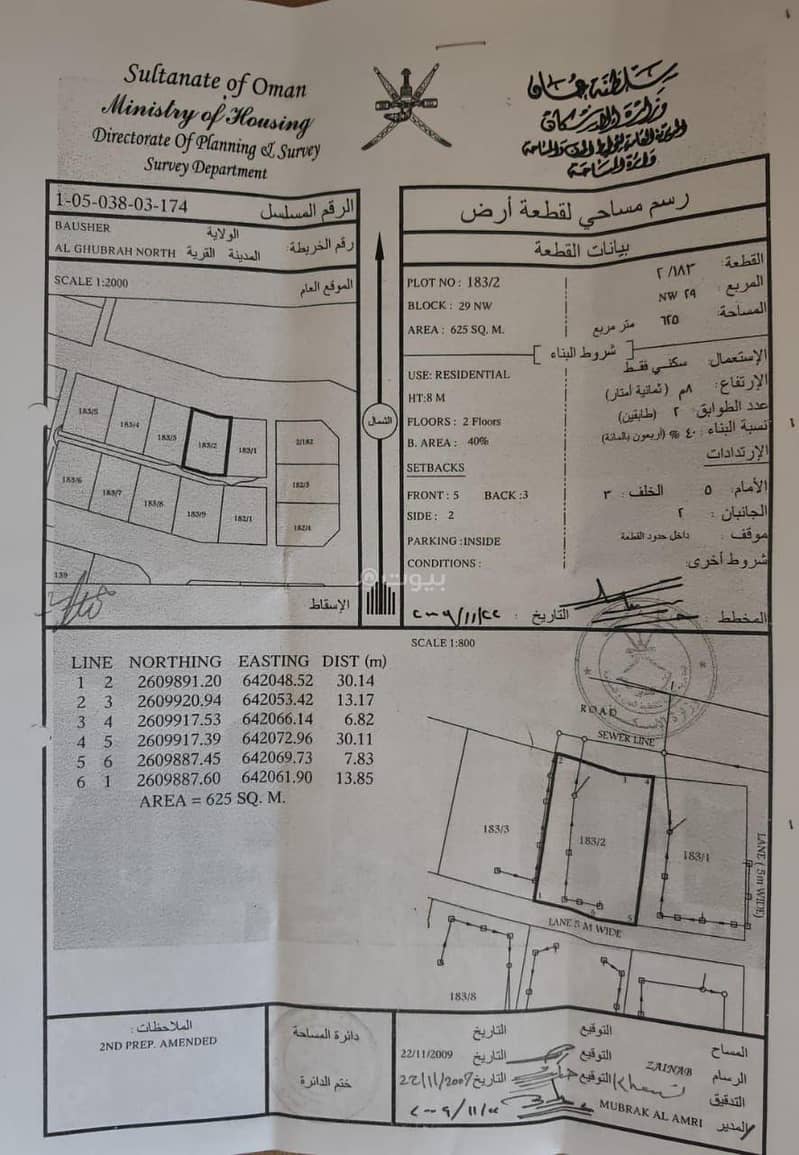 Sultanate of Oman
Ministry of Housing
Directorate Of Planning & Survey
Survey Department
سلطنة عمان
وزارة الإسكان
1-05-038-03-174 الرقم المسلسل
BAUSHER الولاية
AL GHUBRAH NORTH المدينة القرية رقم الخريطة:
SCALE 1:2000 الموقع العام
183/5
183/4
183/3
183/2
183/1
2/182
183/6
183/7
183/8
183/9
182/1
182/3
182/4
139
الإسقاط
الشمال
رسم مساحي لقطعة أرض
بيانات القطعة
PLOT NO : 183/2 القطعة: ٢/١٨٣
BLOCK : 29 NW المربع : NW ٢٩
AREA : 625 SQ. M. المساحة: ٦٢٥ متر مربع
شروط البناء
USE: RESIDENTIAL الإستعمال: سكني فقط
HT:8 M الإرتفاع: ٨م (ثمانية أمتار)
FLOORS : 2 Floors عدد الطوابق: ٢ (طابقين)
B. AREA : 40% نسبة البناء : ٤٠ % (أربعون بالمائة)
SETBACKS الإرتدادات
FRONT : 5 BACK :3 الأمام: ٥ الخلف : ٣
SIDE : 2 الجانبان : ٢
PARKING :INSIDE موقف: داخل حدود القطعة
CONDITIONS : شروط أخرى:
المخطط : التاريخ : ٢٠٠٩/١١/٢٢
بيوت
SCALE 1:800
LINE NORTHING EASTING DIST (m)
1 2 2609891.20 642048.52 30.14
2 3 2609920.94 642053.42 13.17
3 4 2609917.53 642066.14 6.82
4 5 2609917.39 642072.96 30.11
5 6 2609887.45 642069.73 7.83
6 1 2609887.60 642061.90 13.85
AREA = 625 SQ. M.
ROAD
SEWER LINE
2
3
4
183/3
183/2
183/1
1
6
5
LANE 5 M WIDE
LANE ( 5m WIDE)
183/8
الملاحظات :
2ND PREP. AMENDED
دائرة المساحة
ختم الدائرة
المساح التوقيع التاريخ
الرسام ZAINAB التوقيع التاريخ 22/11/2009
التدقيق التوقيع التاريخ 22/11/2009
المدير MUBRAK AL AMRI